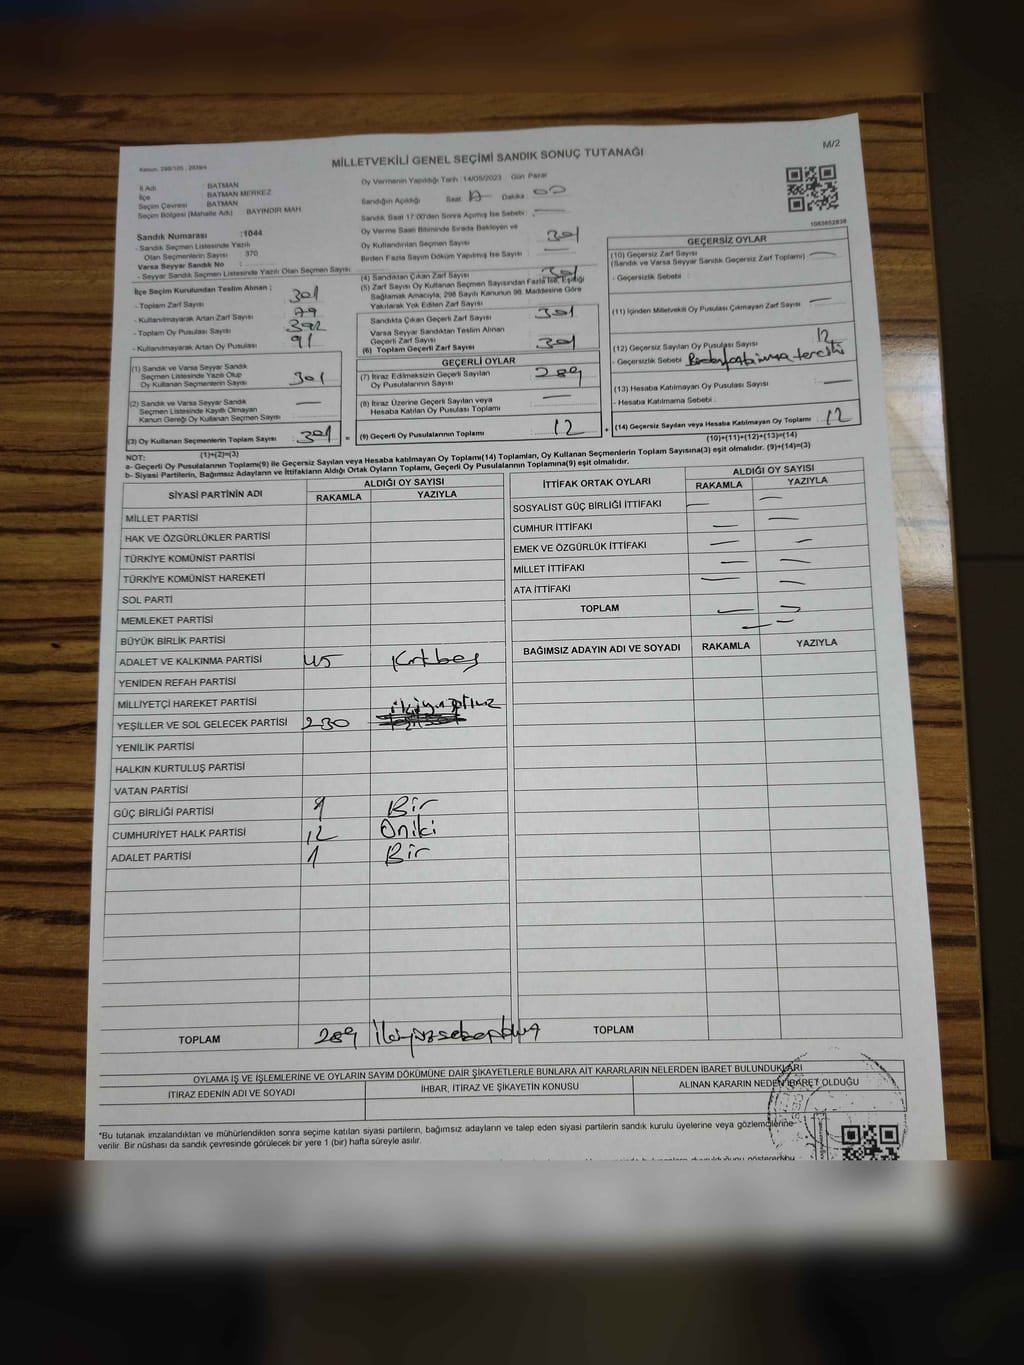 M/2
Kanun: 298/105 , 2839/s
MİLLETVEKİLİ GENEL SEÇİMİ SANDIK SONUÇ TUTANAĞI
İl Adı : BATMAN
İlçe : BATMAN MERKEZ
Seçim Çevresi : BATMAN
Seçim Bölgesi (Mahalle Adı) : BAYINDIR MAH.
Sandık Numarası :1044
- Sandık Seçmen Listesinde Yazılı
Olan Seçmenlerin Sayısı : 370
Varsa Seyyar Sandık No :
- Seyyar Sandık Seçmen Listesinde Yazılı Olan Seçmen Sayısı
İlçe Seçim Kurulundan Teslim Alınan ;
- Toplam Zarf Sayısı 301
- Kullanılmayarak Artan Zarf Sayısı 79
- Toplam Oy Pusulası Sayısı 392
- Kullanılmayarak Artan Oy Pusulası 91
(1) Sandık ve Varsa Seyyar Sandık
Seçmen Listesinde Yazılı Olup
Oy Kullanan Seçmenlerin Sayısı 301
(2) Sandık ve Varsa Seyyar Sandık
Seçmen Listesinde Kayıtlı Olmayan
Kanun Gereği Oy Kullanan Seçmen Sayısı : —
(3) Oy Kullanan Seçmenlerin Toplam Sayısı : 301
(1)+(2)=(3)
Oy Vermenin Yapıldığı Tarih : 14/05/2023 Gün Pazar
Sandığın Açıldığı Saat: 17 Dakika : 00
Sandık Saat 17:00'den Sonra Açılmış İse Sebebi : —
Oy Verme Saati Bitiminde Sırada Bekleyen ve
Oy Kullandırılan Seçmen Sayısı 301
Birden Fazla Sayım Döküm Yapılmış İse Sayısı : —
(4) Sandıktan Çıkan Zarf Sayısı 301
(5) Zarf Sayısı Oy Kullanan Seçmen Sayısından Fazla İse, Eşitliği
Sağlamak Amacıyla, 298 Sayılı Kanunun 98. Maddesine Göre
Yakılarak Yok Edilen Zarf Sayısı :
Sandıkta Çıkan Geçerli Zarf Sayısı : 301
Varsa Seyyar Sandıktan Teslim Alınan
Geçerli Zarf Sayısı
(6) Toplam Geçerli Zarf Sayısı : 301
GEÇERLİ OYLAR
(7) İtiraz Edilmeksizin Geçerli Sayılan
Oy Pusulalarının Sayısı : 289
(8) İtiraz Üzerine Geçerli Sayılan veya
Hesaba Katılan Oy Pusulası Toplamı : —
(9) Geçerli Oy Pusulalarının Toplamı : 12
1083852838
GEÇERSİZ OYLAR
(10) Geçersiz Zarf Sayısı
(Sandık ve Varsa Seyyar Sandık Geçersiz Zarf Toplamı) : —
- Geçersizlik Sebebi :
(11) İçinden Milletvekili Oy Pusulası Çıkmayan Zarf Sayısı : —
(12) Geçersiz Sayılan Oy Pusulası Sayısı : 12
- Geçersizlik Sebebi :
(13) Hesaba Katılmayan Oy Pusulası Sayısı : —
- Hesaba Katılmama Sebebi :
(14) Geçersiz Sayılan veya Hesaba Katılmayan Oy Toplamı : 12
(10)+(11)+(12)+(13)=(14)
NOT:
a- Geçerli Oy Pusulalarının Toplamı(9) ile Geçersiz Sayılan veya Hesaba katılmayan Oy Toplamı(14) Toplamları, Oy Kullanan Seçmenlerin Toplam Sayısına(3) eşit olmalıdır. (9)+(14)=(3)
b- Siyasi Partilerin, Bağımsız Adayların ve İttifakların Aldığı Ortak Oyların Toplamı, Geçerli Oy Pusulalarının Toplamına(9) eşit olmalıdır.
SİYASİ PARTİNİN ADI ALDIĞI OY SAYISI
RAKAMLA YAZIYLA
MİLLET PARTİSİ
HAK VE ÖZGÜRLÜKLER PARTİSİ
TÜRKİYE KOMÜNİST PARTİSİ
TÜRKİYE KOMÜNİST HAREKETİ
SOL PARTİ
MEMLEKET PARTİSİ
BÜYÜK BİRLİK PARTİSİ
ADALET VE KALKINMA PARTİSİ 45 Kırkbeş
YENİDEN REFAH PARTİSİ
MİLLİYETÇİ HAREKET PARTİSİ
YEŞİLLER VE SOL GELECEK PARTİSİ 230 ikiyüzotuz
YENİLİK PARTİSİ
HALKIN KURTULUŞ PARTİSİ
VATAN PARTİSİ
GÜÇ BİRLİĞİ PARTİSİ 1 Bir
CUMHURİYET HALK PARTİSİ 12 Oniki
ADALET PARTİSİ 1 Bir
TOPLAM 289 ikiyüzseksendokuz
İTTİFAK ORTAK OYLARI ALDIĞI OY SAYISI
RAKAMLA YAZIYLA
SOSYALİST GÜÇ BİRLİĞİ İTTİFAKI — —
CUMHUR İTTİFAKI — —
EMEK VE ÖZGÜRLÜK İTTİFAKI — —
MİLLET İTTİFAKI — —
ATA İTTİFAKI — —
TOPLAM — —
BAĞIMSIZ ADAYIN ADI VE SOYADI RAKAMLA YAZIYLA
TOPLAM
OYLAMA İŞ VE İŞLEMLERİNE VE OYLARIN SAYIM DÖKÜMÜNE DAİR ŞİKAYETLERLE BUNLARA AİT KARARLARIN NELERDEN İBARET BULUNDUKLARI
İTİRAZ EDENİN ADI VE SOYADI İHBAR, İTİRAZ VE ŞİKAYETİN KONUSU ALINAN KARARIN NEDEN İBARET OLDUĞU
*Bu tutanak imzalandıktan ve mühürlendikten sonra seçime katılan siyasi partilerin, bağımsız adayların ve talep eden siyasi partilerin sandık kurulu üyelerine veya gözlemcilerine
verilir. Bir nüshası da sandık çevresinde görülecek bir yere 1 (bir) hafta süreyle asılır.